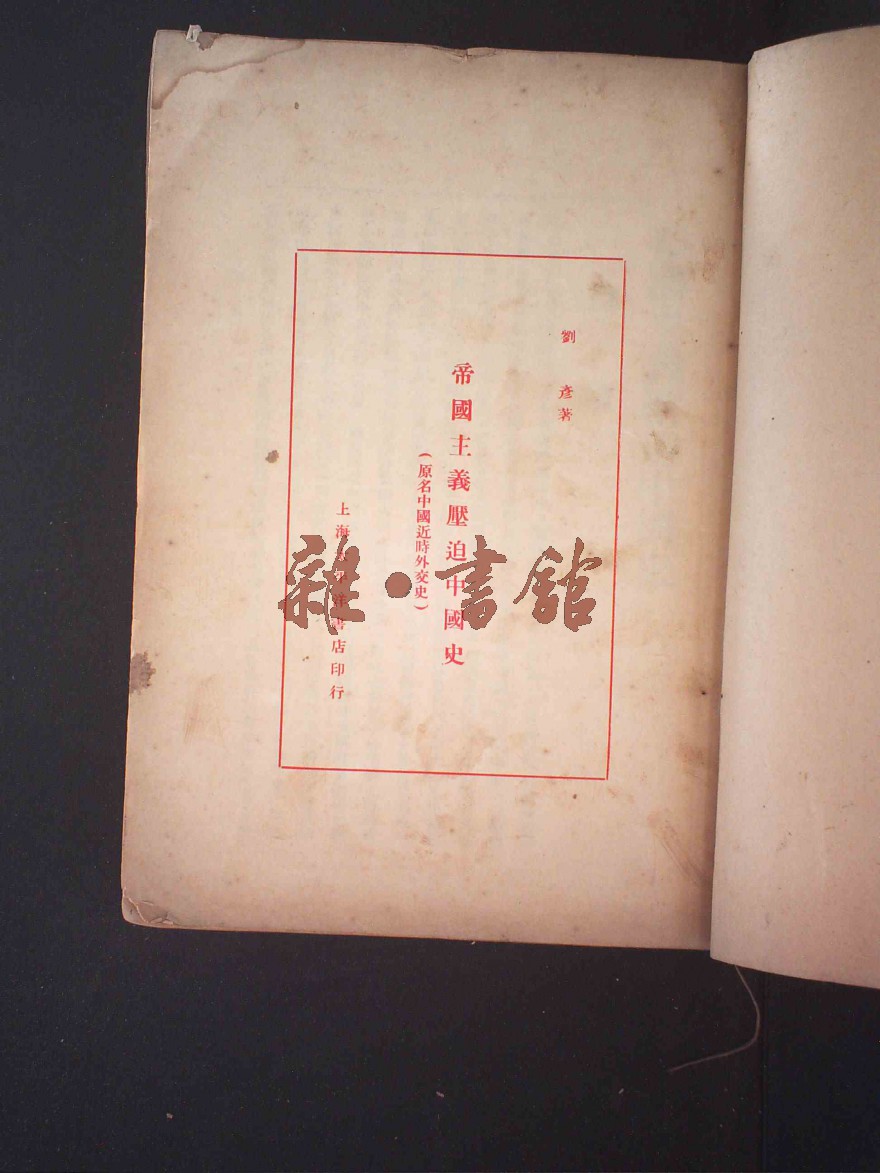 劉彥著
帝國主義壓迫中國史
(原名中國近時外交史)
上海太平洋書店印行
雜·書館